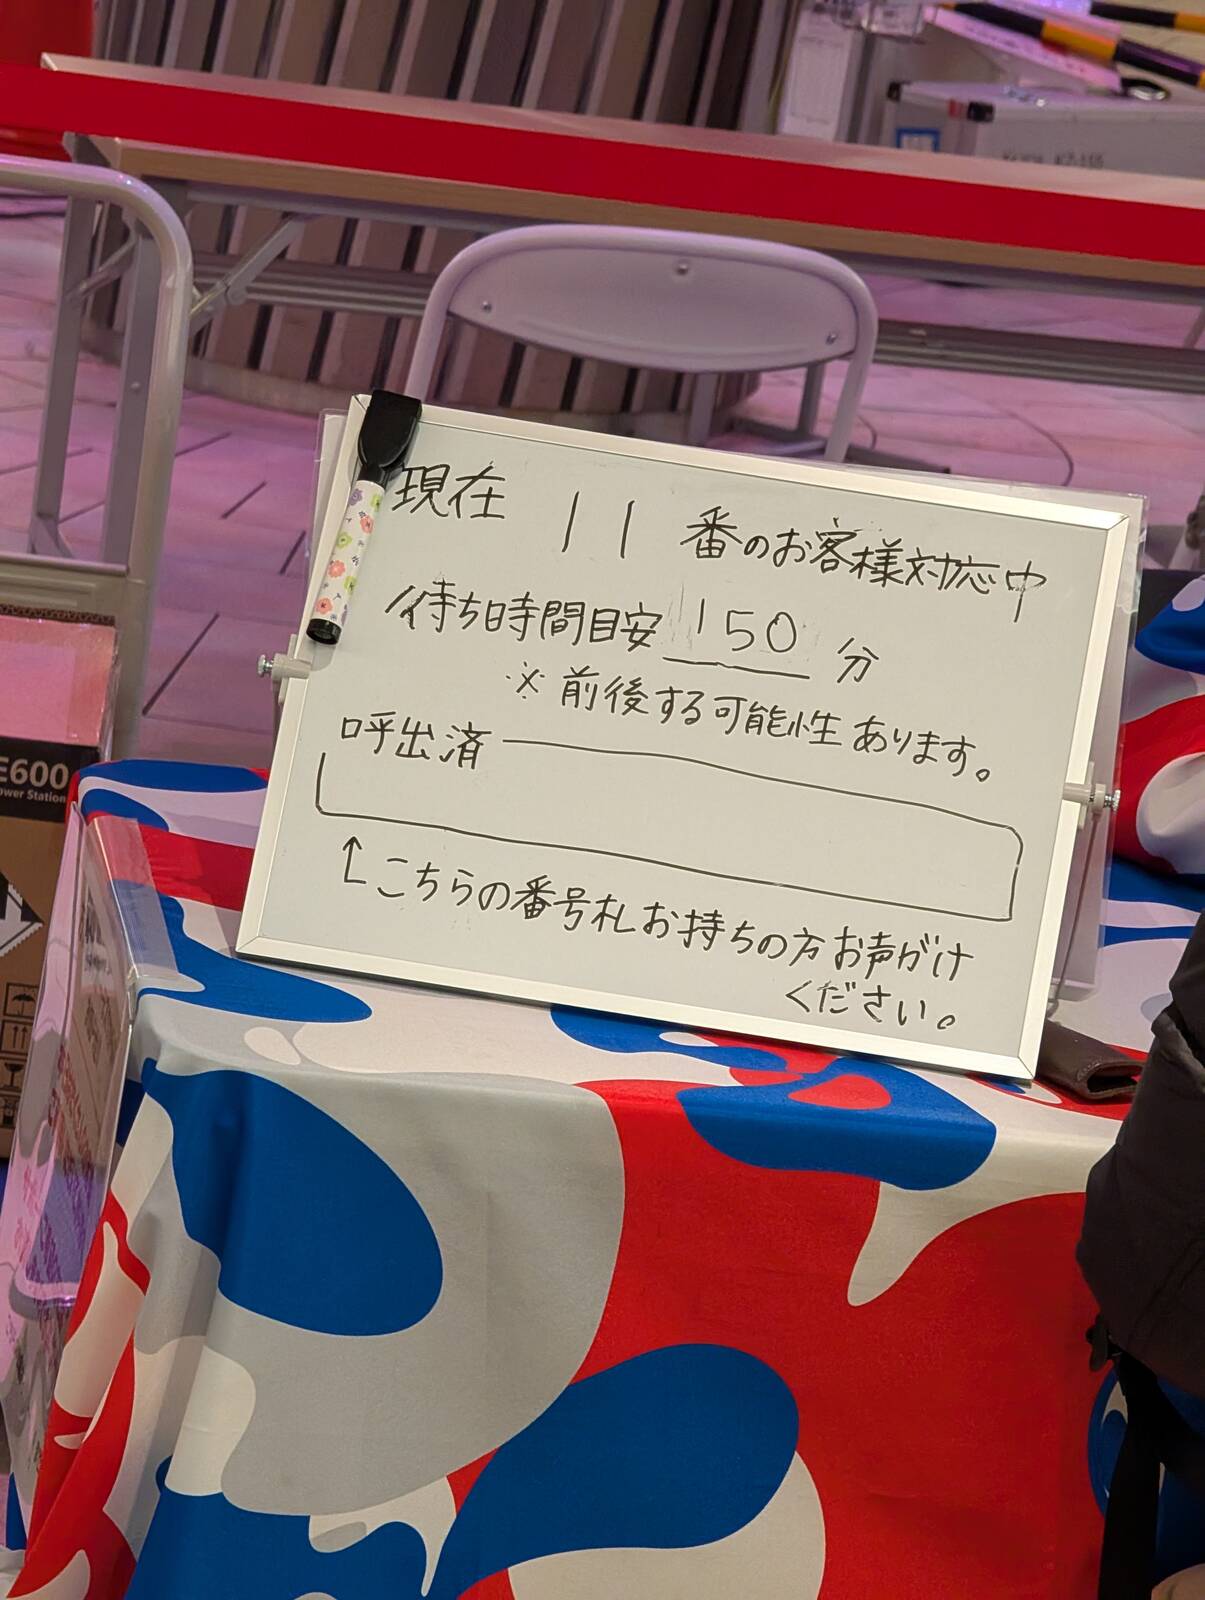 現在 11 番のお客様対応中
待ち時間目安 150 分
※前後する可能性あります。
呼出済
↑こちらの番号札お持ちの方お声がけ
ください。
E600
ower Station